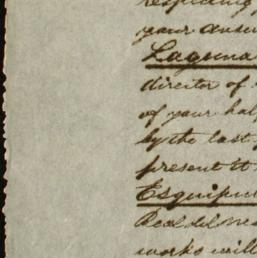 respecting
your answ
Laguna
director of
of your hal
by the last
present it
Esquipu
Real del Mo
works will